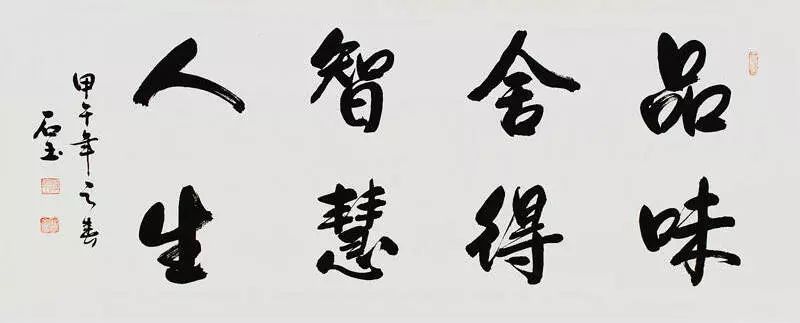 品味
舍得
智慧
人生
甲午年之春
石玉